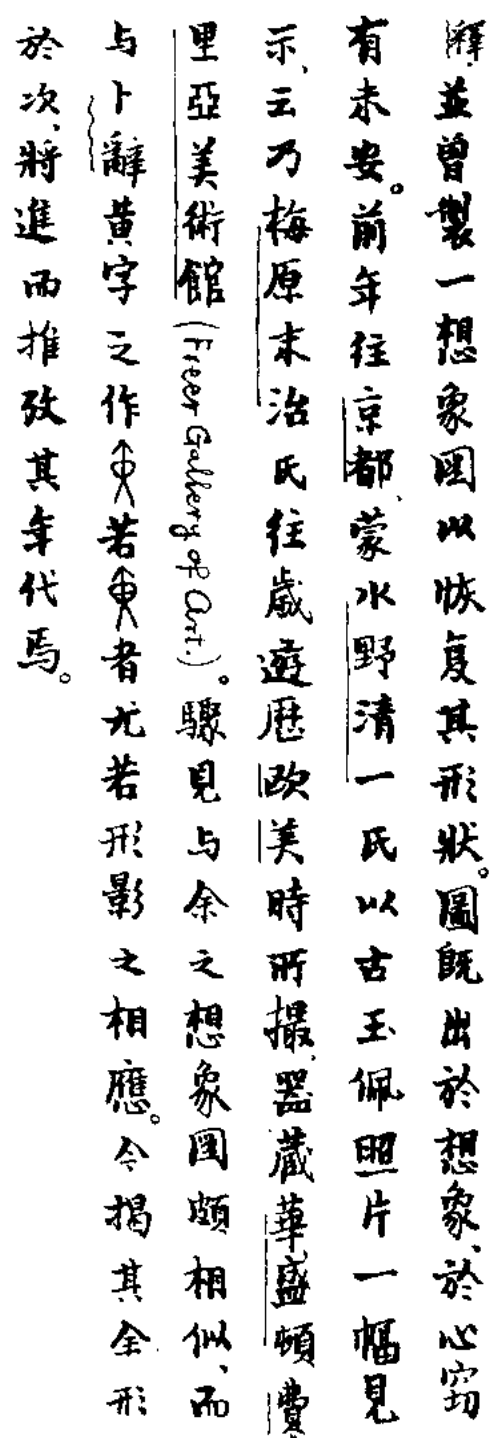 釋，並曾製一想象圖以恢复其形狀。圖既出於想象、於心窃
有未安。前年往京都、蒙水野清一氏以古玉佩照片一幅見
示、云乃梅原末治氏往歲遊歷欧美時所撮、器藏華盛頓費
里亞美術館(Freer Gallery of Art.)。驟見与余之想象圖頗相似、而
与卜辭黄字之作若者尤若形影之相應。今揭其全形
於次、將進而推攷其年代焉。